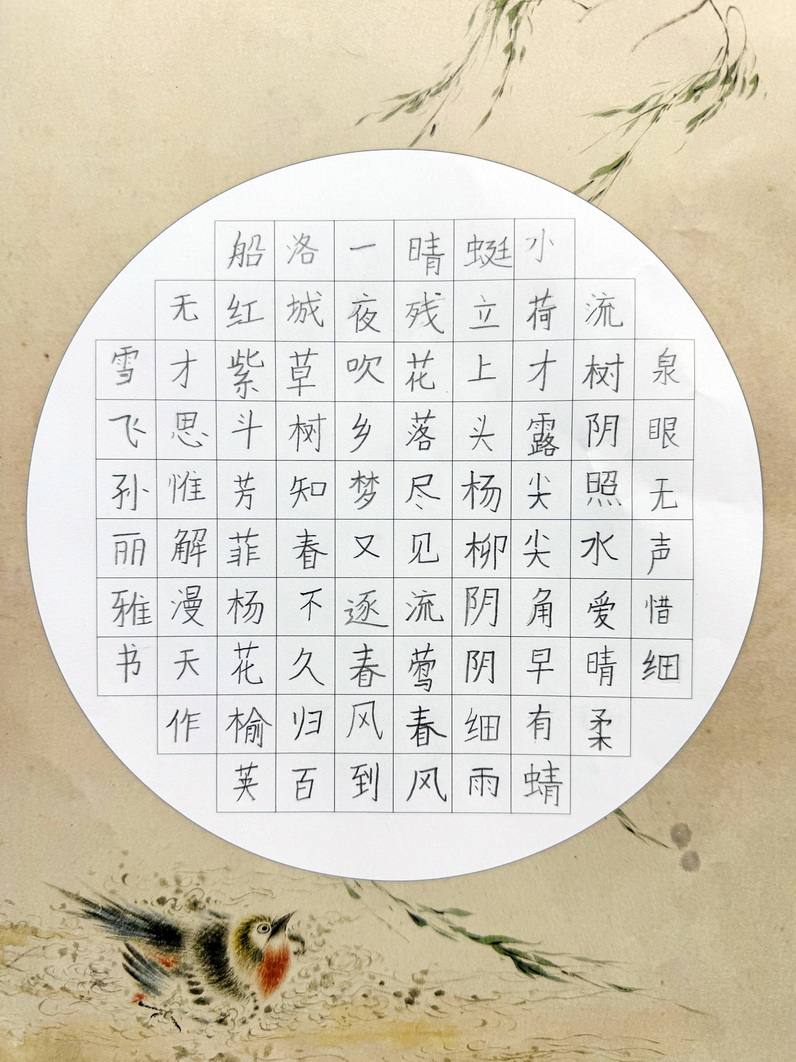 泉眼无声惜细
流树阴照水爱晴柔
小荷才露尖尖角早有蜻
蜓立上头杨柳阴阴细雨
晴残花落尽见流莺春风
一夜吹乡梦又逐春风到
洛城草树知春不久归百
船红紫斗芳菲杨花榆荚
无才思惟解漫天作
雪飞孙丽雅书